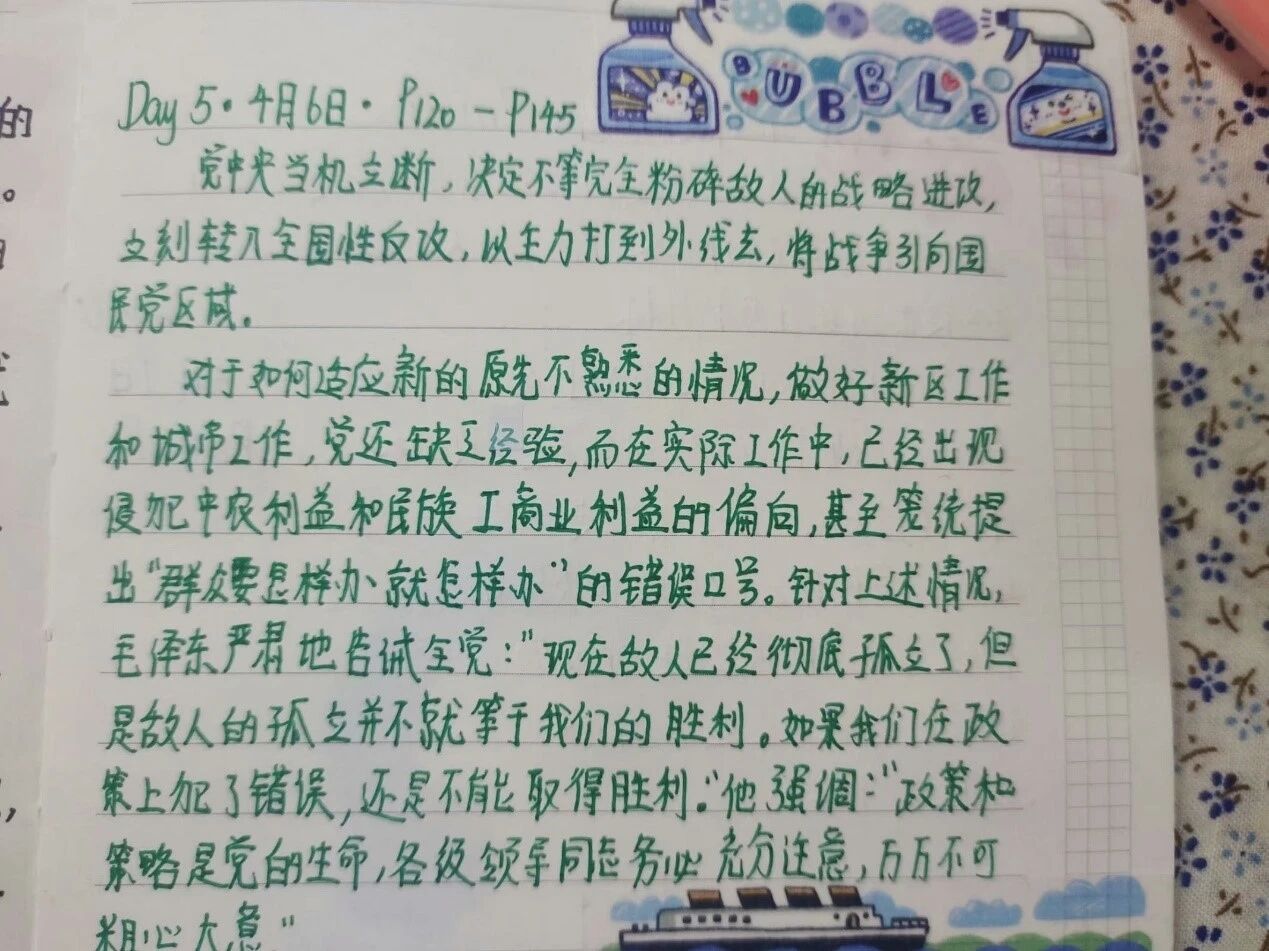 BUBBLE
Day 5·4月6日· P120-P145
党中央当机立断,决定不等完全粉碎敌人的战略进攻,
立刻转入全国性反攻,以主力打到外线去,将战争引向国
民党区域。
对于如何适应新的原先不熟悉的情况,做好新区工作
和城市工作,党还缺乏经验,而在实际工作中,已经出现
侵犯中农利益和民族工商业利益的偏向,甚至笼统提
出“群众要怎样办、就怎样办”的错误口号。针对上述情况,
毛泽东严肃地告诫全党:“现在敌人已经彻底孤立了,但
是敌人的孤立并不就等于我们的胜利。如果我们在政
策上犯了错误,还是不能取得胜利。”他强调:“政策和
策略是党的生命,各级领导同志务必充分注意,万万不可
粗心大意”
的
。
,